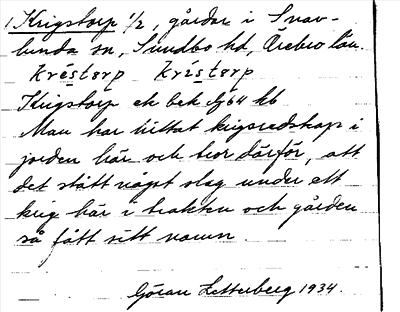 1. Krigstorp 1/2, gårdar i Snav-
lunda sn, Sundbo hd, Örebro län.
kréstorp kréstorp
Krigstorp ek bek lj 64 kb
Man har hittat krigsredskap i
jorden här och tror därför, att
det stått något slag under ett
krig här i trakten och gården
så fått sitt namn.
Göran Zetterberg 1934.